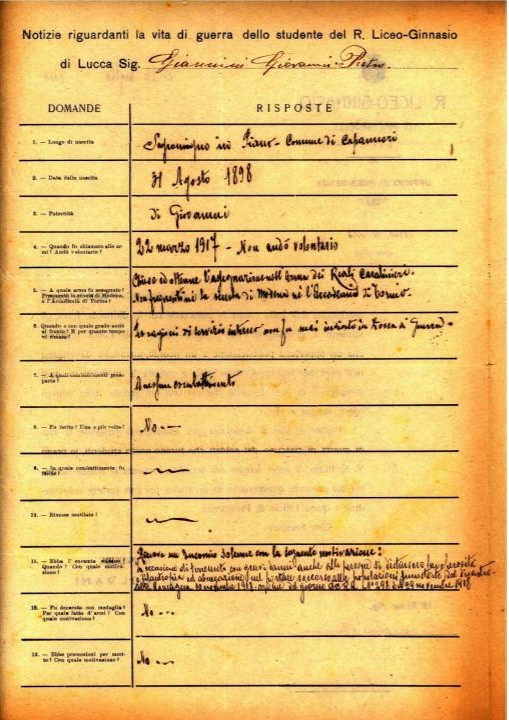 Notizie riguardanti la vita di guerra dello studente del R. Liceo-Ginnasio
di Lucca Sig. Giannini Giovanni-Pietro.
DOMANDE RISPOSTE
1. — Luogo di nascita Segromigno in Piano - Comune di Capannori
2. — Data della nascita 31 Agosto 1898
3. — Paternità di Giovanni
4. — Quando fu chiamato alle armi? Andò volontario? 22 marzo 1917 - Non andò volontario
5. — A quale arma fu assegnato? Frequentò la scuola di Modena, o l'Accademia di Torino? Chiese ed ottenne l'assegnazione nell'Arma dei Reali Carabinieri.
Non frequentò nè la scuola di Modena nè l'Accademia di Torino.
6. Quando e con quale grado andò al fronte? E per quanto tempo vi rimase? Per ragioni di servizio interno non fu mai inviato in zona di Guerra.
7. — A quali combattimenti prese parte? A nessun combattimento
8. — Fu ferito? Una o più volte? No
9. — In quale combattimento fu ferito?
10. — Rimase mutilato?
11. — Ebbe l'encomio solenne? Quando? Con quale motivazione? un encomio solenne con la seguente motivazione:
In occasione di terremoto con gravi danni anche alle persone si distinse
filantropia ed abnegazione nel portare soccorso alle popolazioni
10 novembre 1918
12. — Fu decorato con medaglia? Per quale fatto d'armi? Con quale motivazione? No
13. — Ebbe promozioni per merito? Con quale motivazione? No